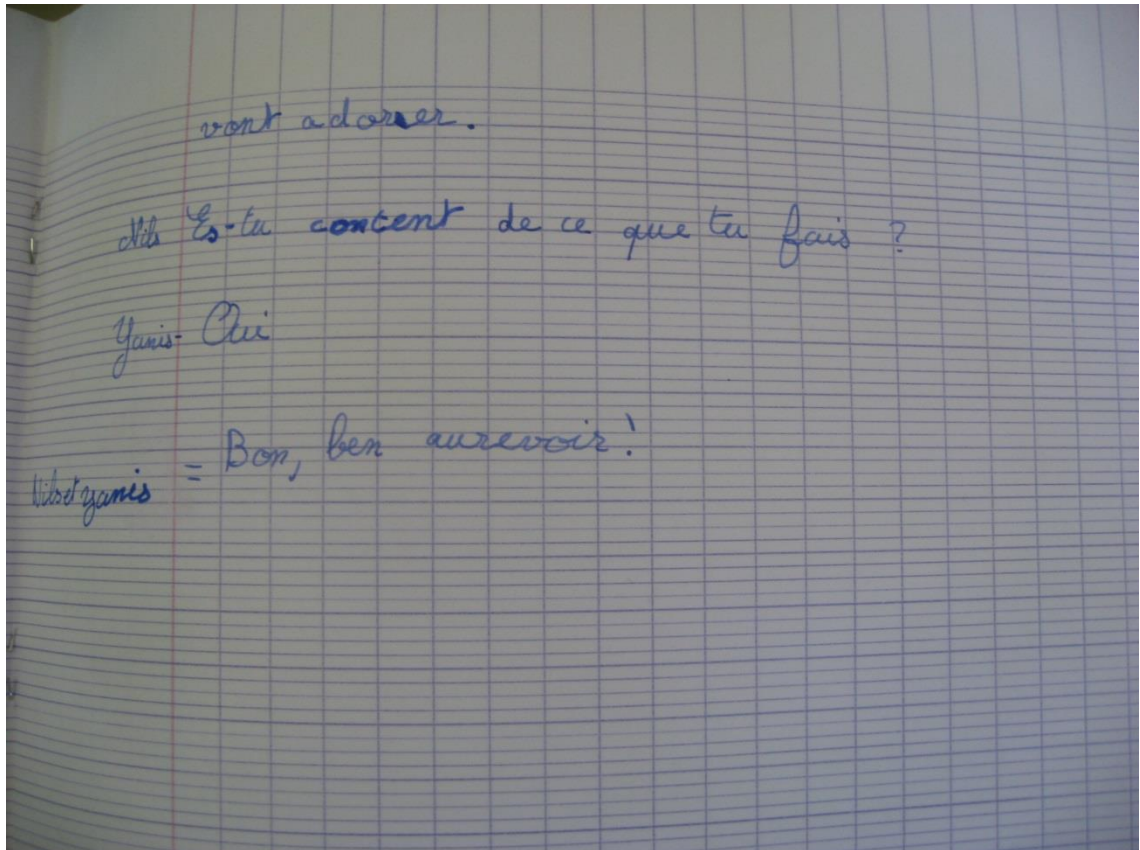 vont adorer.
Nils Es-tu content de ce que tu fais ?
Yanis- Oui
Nils et yanis = Bon, ben aurevoir!